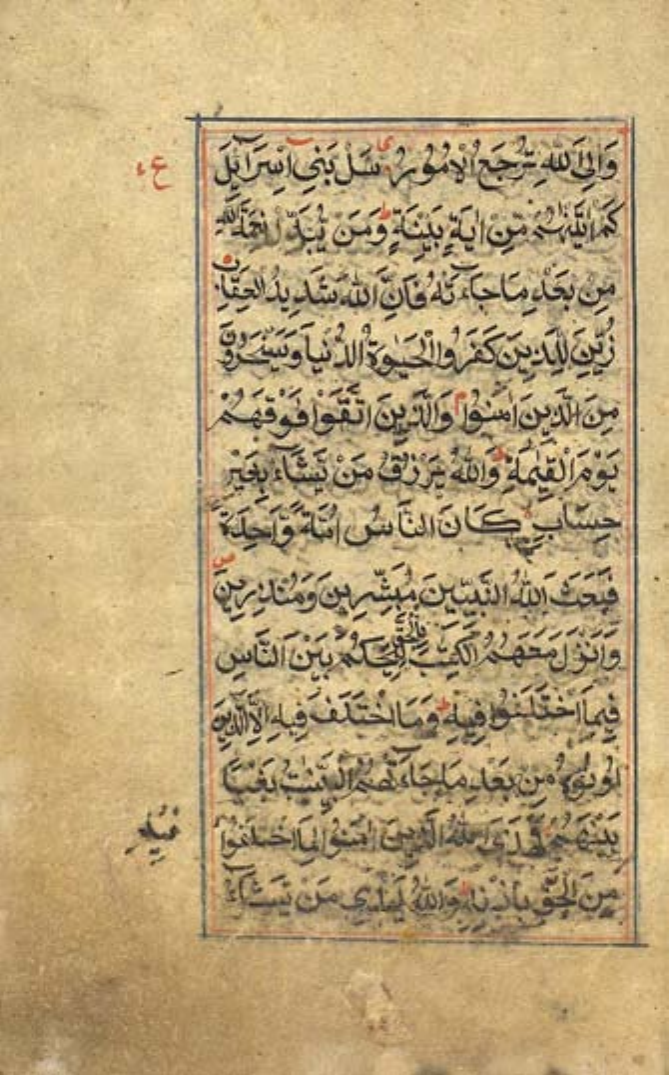 وَاِلَى اللّٰهِ تُرْجَعُ الْاُمُوْرُ سَلْ بَنِیْ اِسْرَآئِلَ
ع
كَمْ اٰتَيْنٰهُمْ مِّنْ اٰيَةٍ بَيِّنَةٍ ط وَمَنْ يُّبَدِّلْ نِعْمَةَ اللّٰهِ
مِنْ بَعْدِ مَا جَآءَتْهُ فَاِنَّ اللّٰهَ شَدِيْدُ الْعِقَابِ
زُيِّنَ لِلَّذِيْنَ كَفَرُوا الْحَيٰوةُ الدُّنْيَا وَيَسْخَرُوْنَ
مِنَ الَّذِيْنَ اٰمَنُوْا م وَالَّذِيْنَ اتَّقَوْا فَوْقَهُمْ
يَوْمَ الْقِيٰمَةِ ط وَاللّٰهُ يَرْزُقُ مَنْ يَّشَآءُ بِغَيْرِ
حِسَابٍ كَانَ النَّاسُ اُمَّةً وَّاحِدَةً
فَبَعَثَ اللّٰهُ النَّبِيّٖنَ مُبَشِّرِيْنَ وَمُنْذِرِيْنَ ص
وَاَنْزَلَ مَعَهُمُ الْكِتٰبَ بِالْحَقِّ لِيَحْكُمَ بَيْنَ النَّاسِ
فِيْمَا اخْتَلَفُوْا فِيْهِ ط وَمَا اخْتَلَفَ فِيْهِ اِلَّا الَّذِيْنَ
اُوْتُوْهُ مِنْ بَعْدِ مَا جَآءَتْهُمُ الْبَيِّنٰتُ بَغْيًا
بَيْنَهُمْ فَهَدَى اللّٰهُ الَّذِيْنَ اٰمَنُوْا لِمَا اخْتَلَفُوْا
فِيْهِ
مِنَ الْحَقِّ بِاِذْنِهٖ ط وَاللّٰهُ يَهْدِیْ مَنْ يَّشَآءُ